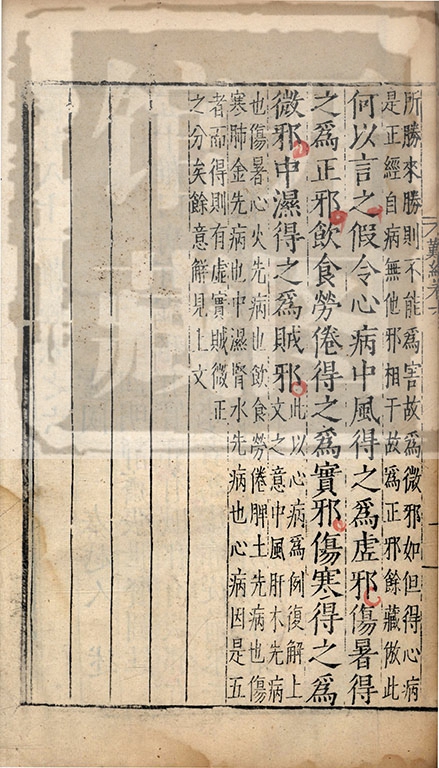 所勝來勝則不能為害故為微邪如但得心病
是正經自病無他邪相干故為正邪餘藏倣此
何以言之假令心病中風得之為虛邪傷暑得
之為正邪飲食勞倦得之為實邪傷寒得之為
微邪中濕得之為賊邪
此以心病為例復解上
文之意中風肝木先病
也傷暑心火先病也飲食勞倦脾土先病也傷
寒肺金先病也中濕腎水先病也心病因是五
者而得則有虛實賊微正
之分矣餘意解見上文